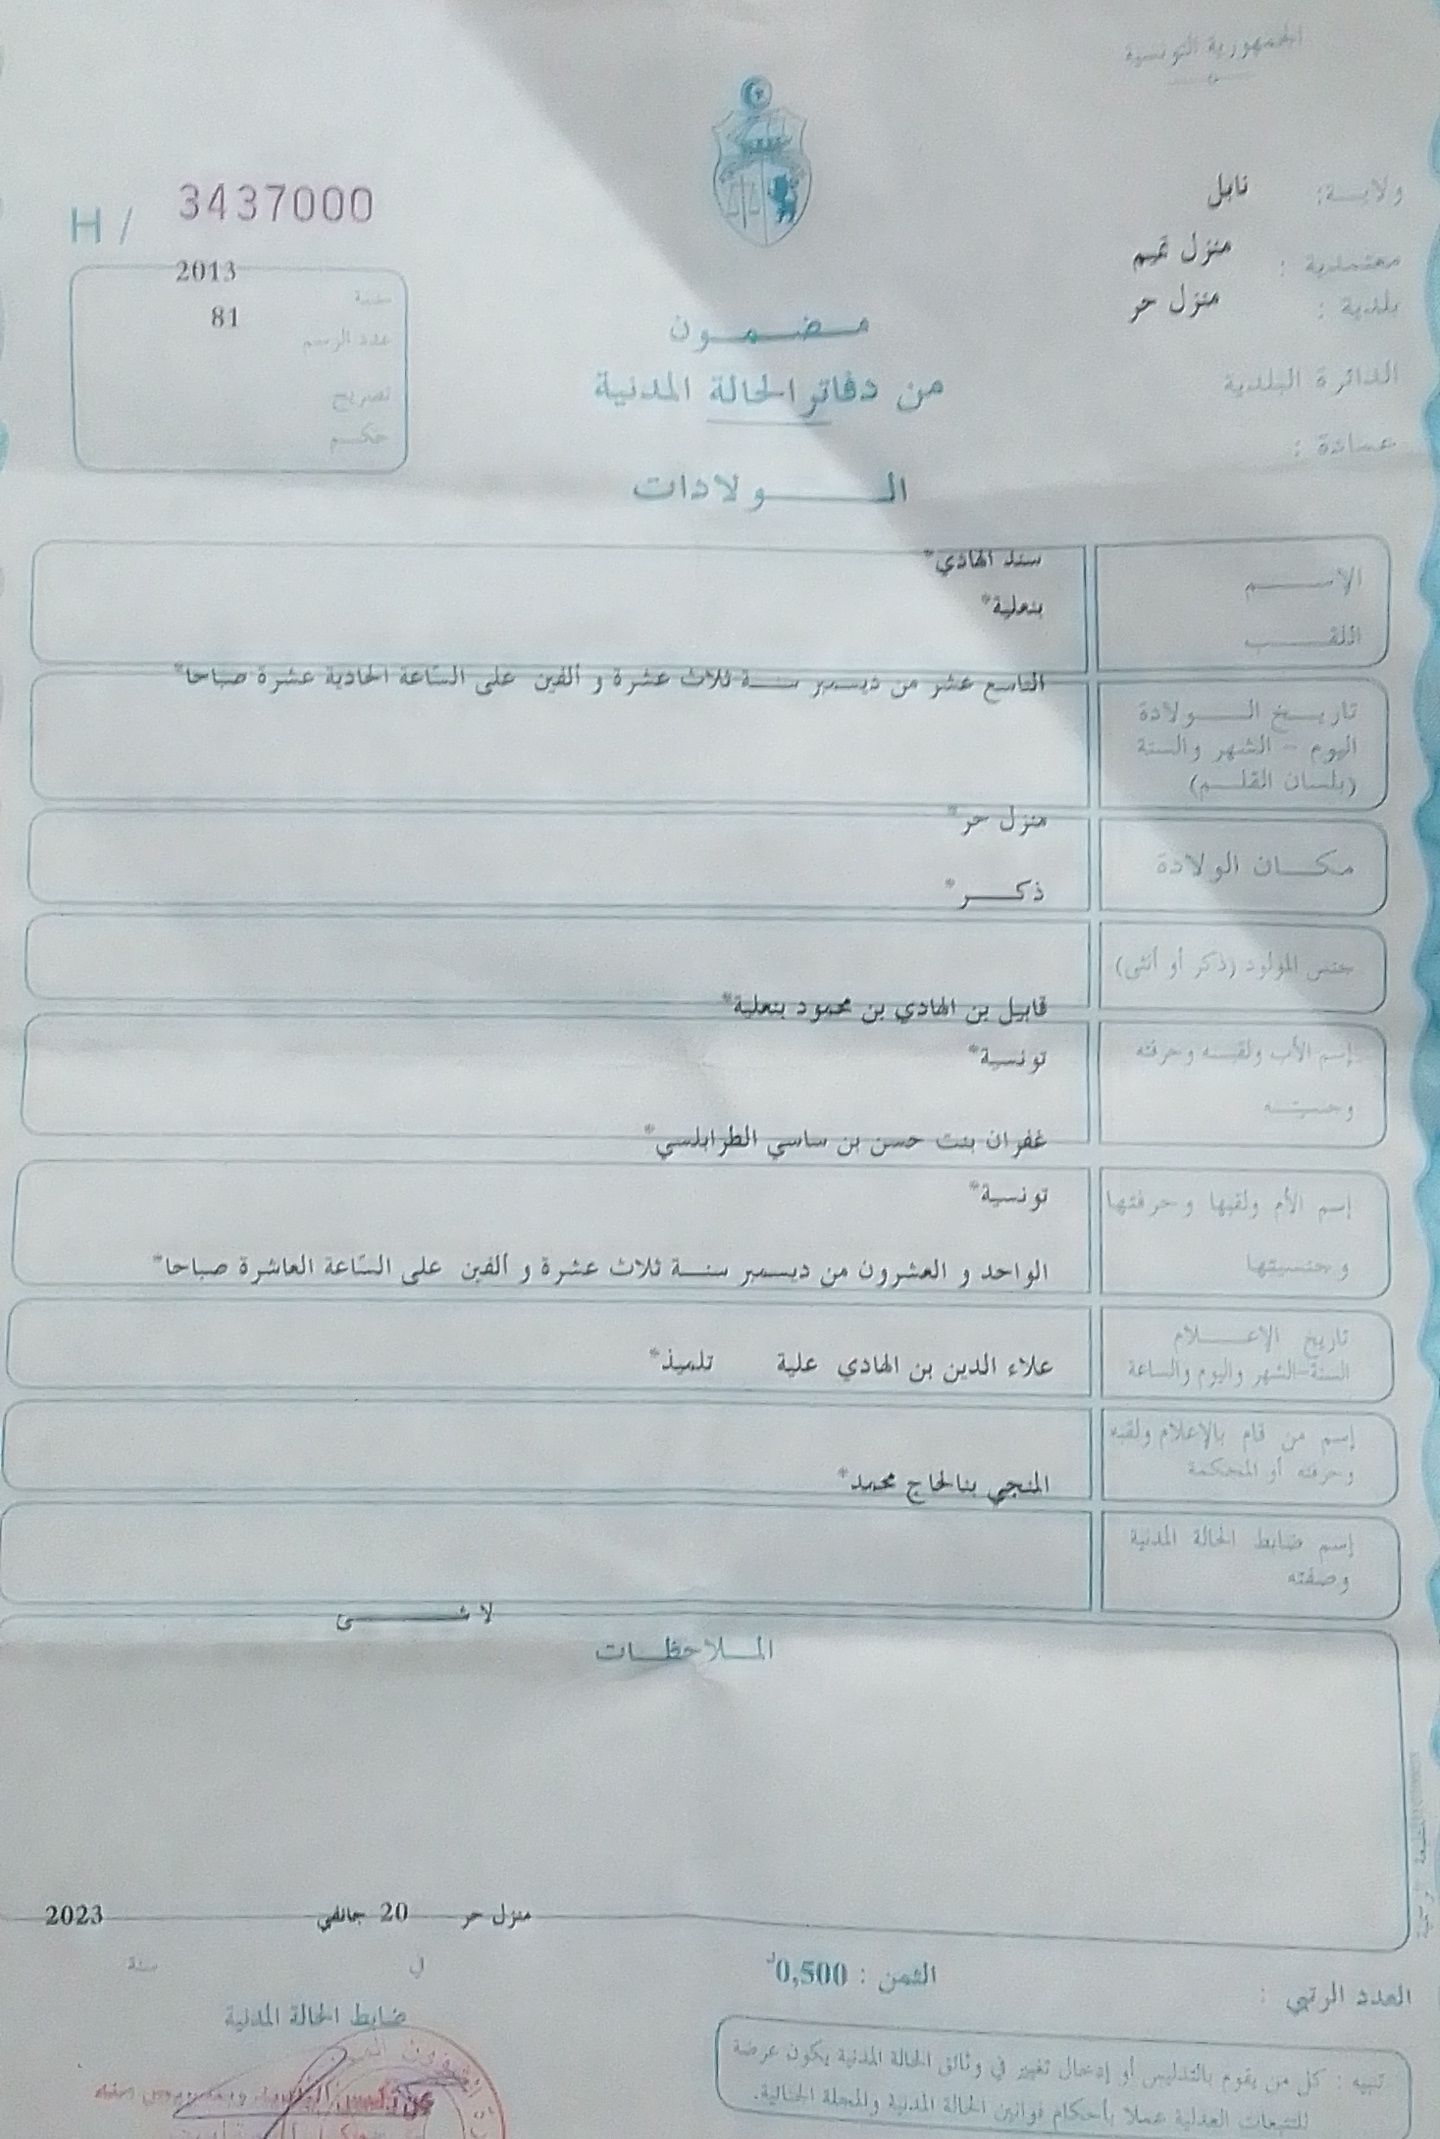 الجمهورية التونسية
ولايـــة: نابل
معتمدية : منزل تميم
بلدية : منزل حر
الدائرة البلدية
عمادة :
H / 3437000
سنة 2013
عدد الرسم 81
تصريح
حكـــم
مـــضـــمـــون
من دفاتر الحالة المدنية
الـــــولادات
الإســـــم سند الهادي*
اللقـــــب بنعلية*
تاريـــخ الـــــولادة التاسع عشر من ديسمبر سنـــة ثلاث عشرة و ألفين على السّاعة الحادية عشرة صباحا*
اليوم - الشهر والسنة
(بلسان القلـــم)
مكـــان الولادة منزل حر*
جنس المولود (ذكر أو أنثى) ذكـــر*
إسم الأب ولقبـــه وحرفته قابيل بن الهادي بن محمود بنعلية*
وجنسيتـــه تونسية*
إسم الأم ولقبها وحرفتها غفران بنت حسن بن ساسي الطرابلسي*
وجنسيتها تونسية*
تاريخ الإعـــلام الواحد و العشرون من ديسمبر سنـــة ثلاث عشرة و ألفين على السّاعة العاشرة صباحا*
السنة-الشهر واليوم والساعة
إسم من قام بالإعلام ولقبه علاء الدين بن الهادي علية تلميذ*
وحرفته أو المحكمة
إسم ضابط الحالة المدنية المنجي بنالحاج محمد*
وصفته
لا شـــــى
المـــلاحظـــات
منزل حر في 20 جانفي سنة 2023
ضابط الحالة المدنية
العدد الرتبي :
الثمن : 0,500د
تنبيه : كل من يقوم بالتدليس أو إدخال تغيير في وثائق الحالة المدنية يكون عرضة
للتتبعات العدلية عملا بأحكام قوانين الحالة المدنية والمجلة الجنائية.